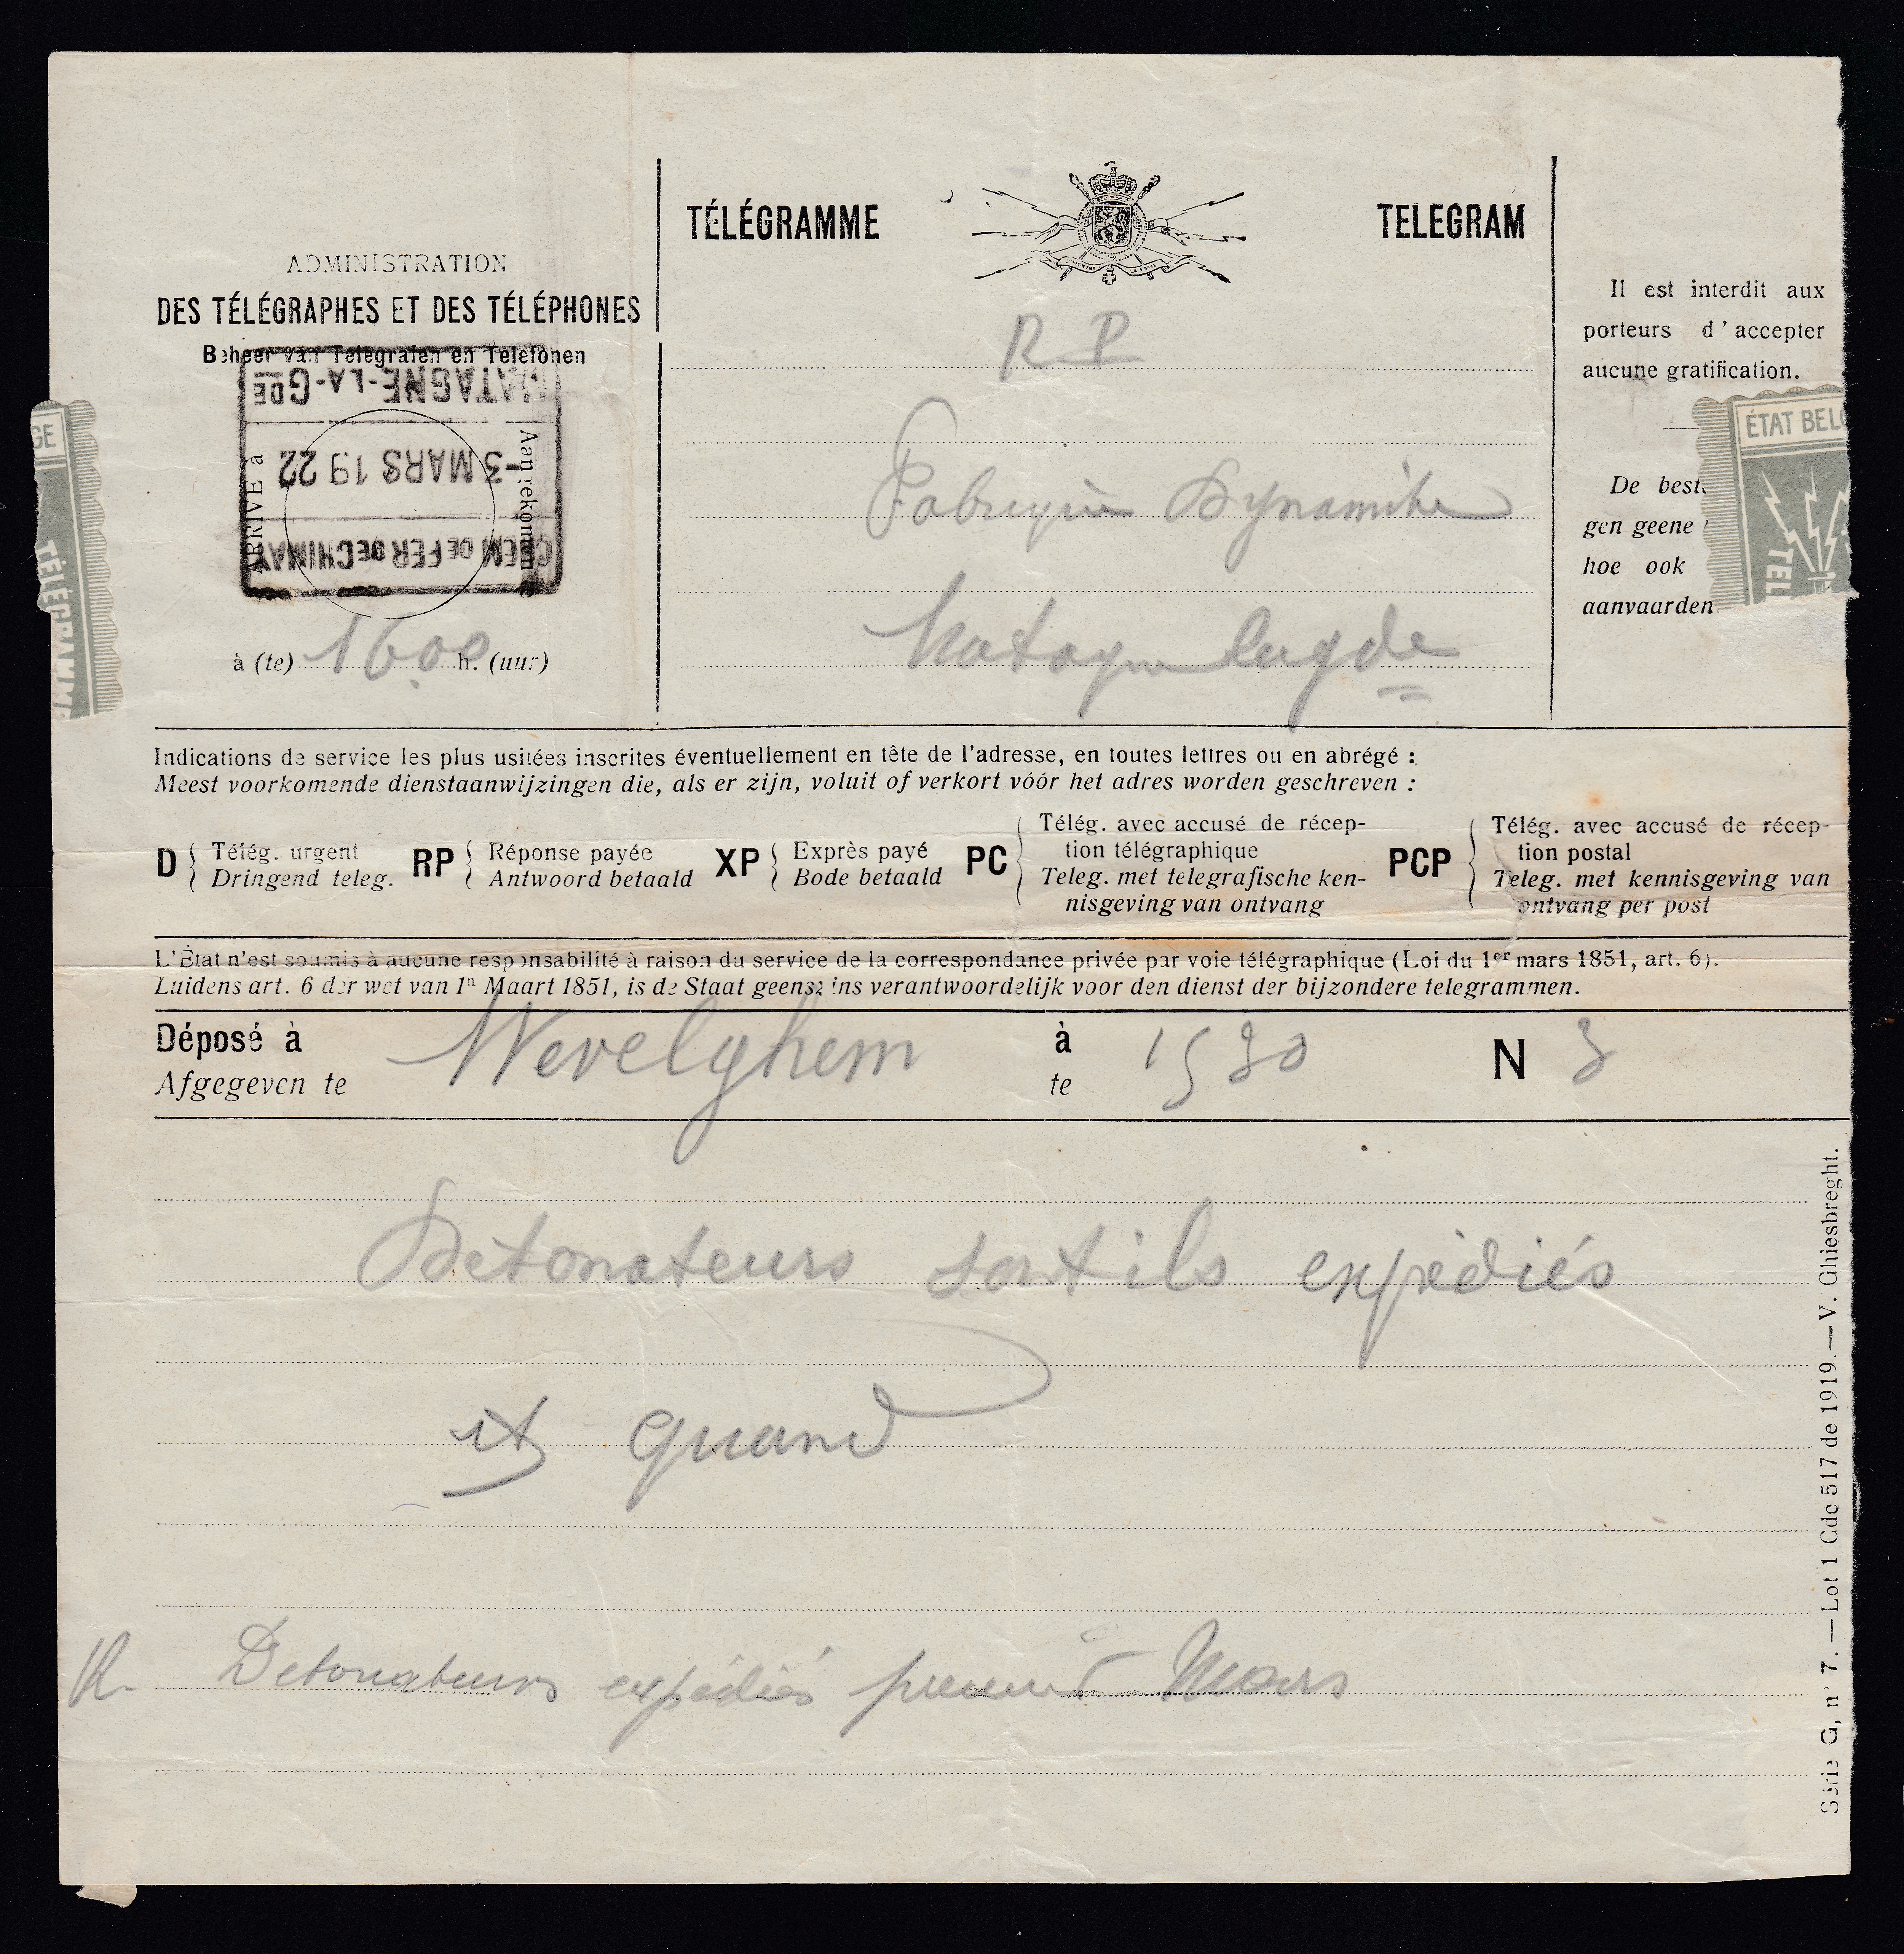 TÉLÉGRAMME
TELEGRAM
ADMINISTRATION
DES TÉLÉGRAPHES ET DES TÉLÉPHONES
Beheer van Telegrafen en Telefonen
MATAGNE-LA-GDE
-3 MARS 1922
CHEM DE FER DE CHIMAY
ARRIVÉ à
Aangekomen te
à (te) 16.00 h. (uur)
R P
Fabrique Dynamite
Matagne lagde
Il est interdit aux
porteurs d'accepter
aucune gratification.
De best
gen geene
hoe ook
aanvaarden
ÉTAT BELG
TÉL
GE
TÉLÉGRAMM
Indications de service les plus usitées inscrites éventuellement en tête de l'adresse, en toutes lettres ou en abrégé :
Meest voorkomende dienstaanwijzingen die, als er zijn, voluit of verkort vóór het adres worden geschreven :
D { Télég. urgent
Dringend teleg.
RP { Réponse payée
Antwoord betaald
XP { Exprès payé
Bode betaald
PC { Télég. avec accusé de récep-
tion télégraphique
Teleg. met telegrafische ken-
nisgeving van ontvang
PCP { Télég. avec accusé de récep-
tion postal
Teleg. met kennisgeving van
ontvang per post
L'État n'est soumis à aucune responsabilité à raison du service de la correspondance privée par voie télégraphique (Loi du 1er mars 1851, art. 6).
Luidens art. 6 der wet van 1n Maart 1851, is de Staat geenszins verantwoordelijk voor den dienst der bijzondere telegrammen.
Déposé à Wevelghem à 1530 N 3
Afgegeven te te
Detonateurs sont ils expédiés
et quand
R. Detonateurs expédiés premier Mars
Série G, n° 7. — Lot 1 Cde 517 de 1919. — V. Ghiesbreght.